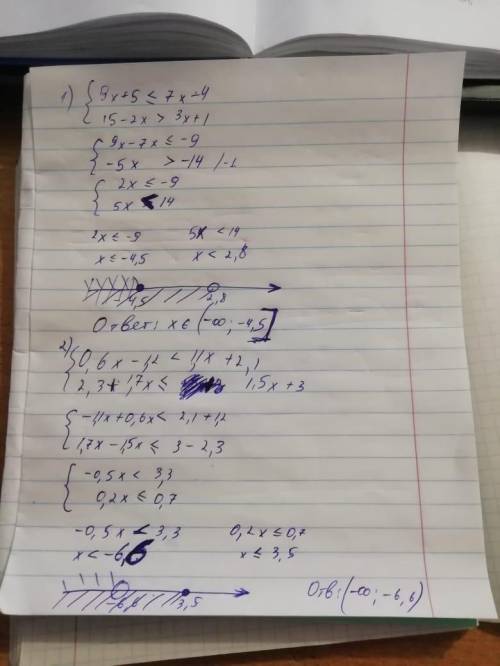 1) { 9x+5 ≤ 7x-4
15-2x > 3x+1
{ 9x-7x ≤ -9
-5x > -14 /-1
{ 2x ≤ -9
5x < 14
2x ≤ -9 5x < 14
x ≤ -4,5 x < 2,8
4,5 2,8
Ответ: x ∈ (-∞; -4,5]
2) { 0,6x - 1,2 < 1,1x + 2,1
2,3 + 1,7x ≤ 1,5x + 3
{ -1,1x + 0,6x < 2,1 + 1,2
1,7x - 1,5x ≤ 3 - 2,3
{ -0,5x < 3,3
0,2x ≤ 0,7
-0,5x < 3,3 0,2x ≤ 0,7
x < -6,6 x ≤ 3,5
-6,6 3,5 Отв: (-∞; -6,6)